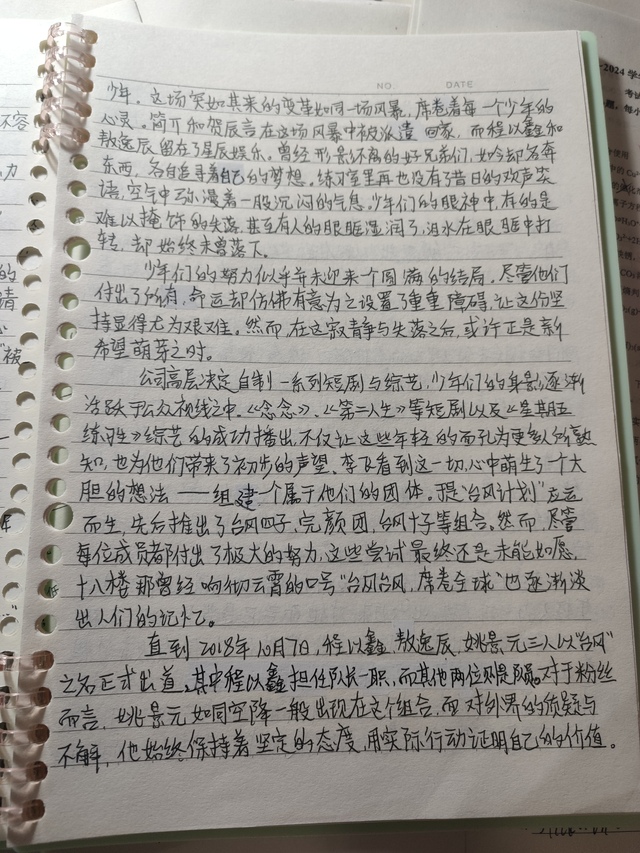 NO. DATE
少年，这场突如其来的变革如同一场风暴，席卷着每一个少年的
心灵。简亓和贺辰言在这场风暴中被派遣回家，而程以鑫和
敖逸辰留在了星辰娱乐。曾经形影不离的好兄弟们，如今却各奔
东西，各自追寻着自己的梦想。练习室里再也没有了昔日的欢声笑
语，空气中弥漫着一股沉闷的气息。少年们的眼神中，有的是
难以掩饰的失落，甚至有人的眼眶湿润了，泪水在眼眶中打
转，却始终未曾落下。
少年们的努力似乎并未迎来个圆满的结局。尽管他们
付出了所有，命运却仿佛有意为之设置了重重障碍，让这份坚
持显得尤为艰难。然而，在这寂静与失落之后，或许正是新
希望萌芽之时。
公司高层决定自制一系列短剧与综艺，少年们的身影逐渐
活跃于公众视线之中。《念念》、《第二人生》等短剧以及《星期五
练习生》综艺的成功播出，不仅让这些年轻的面孔为更多人所熟
知，也为他们带来了初步的声望。李飞看到这一切，心中萌生了一个大
胆的想法——组建一个属于他们的团体。于是"台风计划"应运
而生，先后推出了台风四子，完颜团，台风十子等组合。然而，尽管
每位成员都付出了极大的努力，这些尝试最终还是未能如愿，
十八楼那曾经响彻云霄的口号"台风台风，席卷全球"也逐渐淡
出人们的记忆。
直到2018年10月7日，程以鑫，敖逸辰，姚景元三人以"台风"
之名正式出道。其中程以鑫担任队长一职，而其他两位则是队员。对于粉丝
而言，姚景元如同空降一般出现在这个组合，而对外界的质疑与
不解，他始终保持着坚定的态度，用实际行动证明自己的价值。
2024学
考试